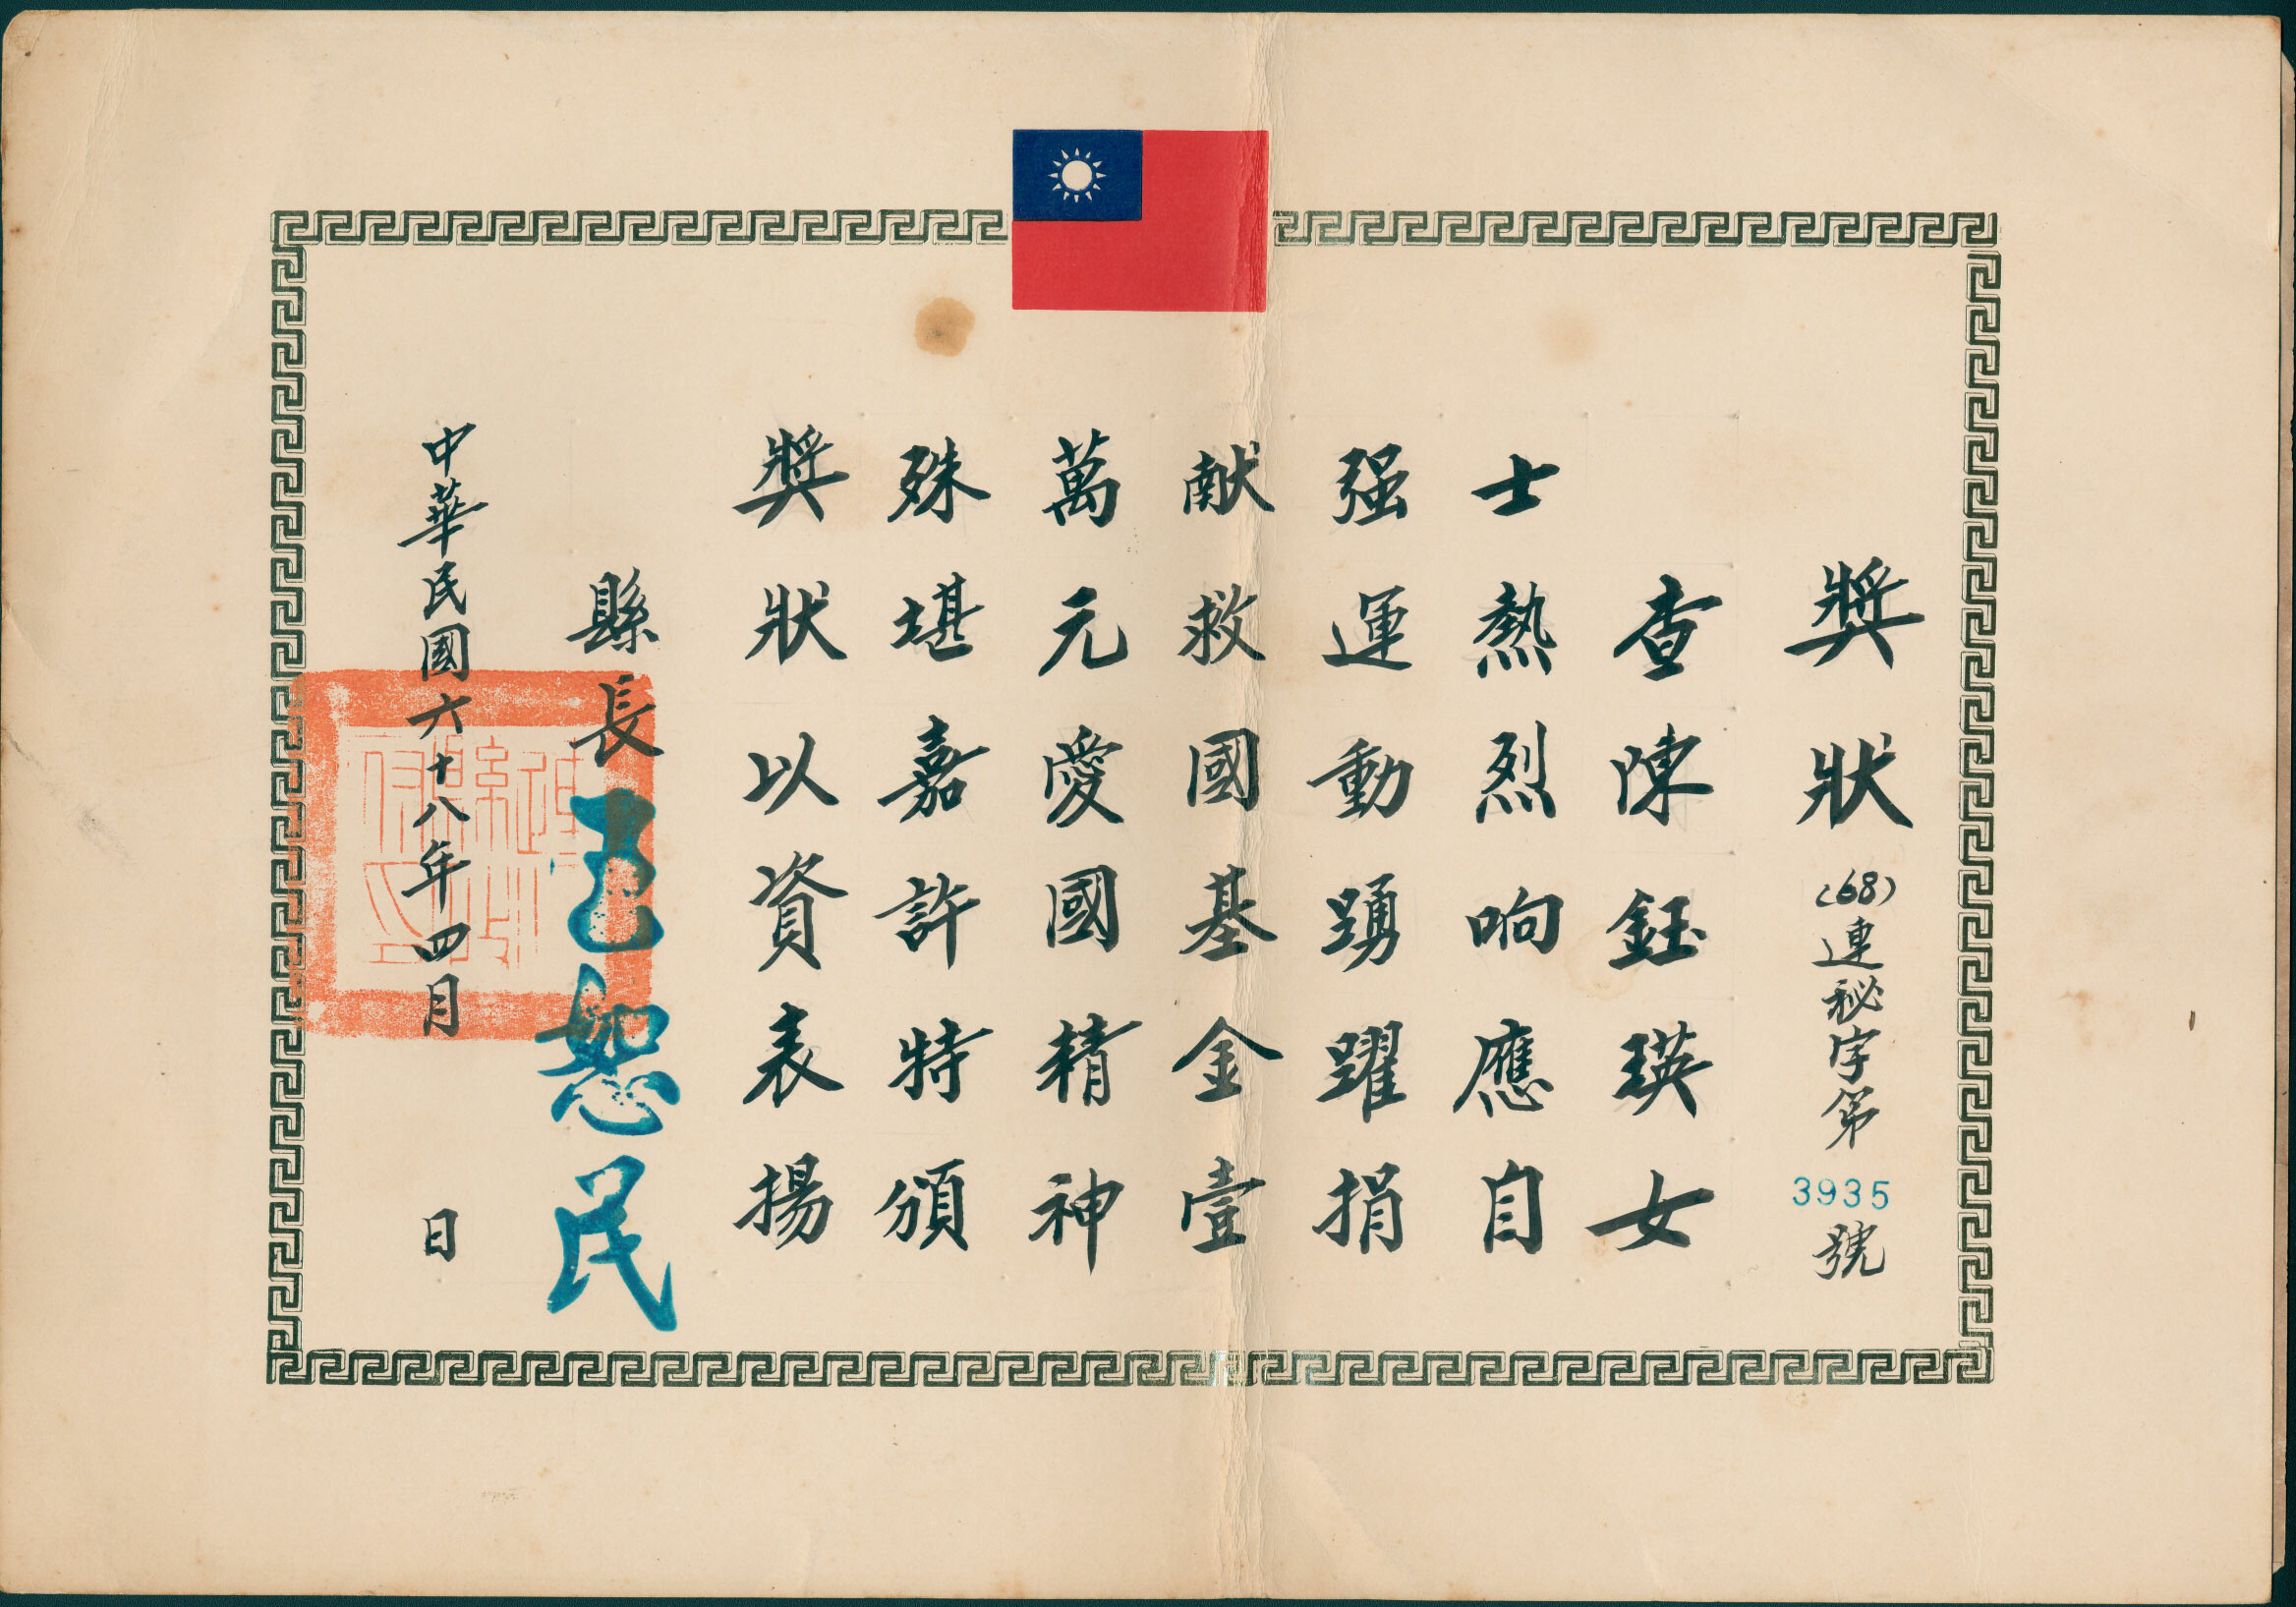 獎狀 (68)連秘字第3935號
查陳鈺瑛女
士熱烈响應自
强運動踴躍捐
献救國基金壹
萬元愛國精神
殊堪嘉許特頒
獎狀以資表揚
縣長 恕民
中華民國六十八年四月 日